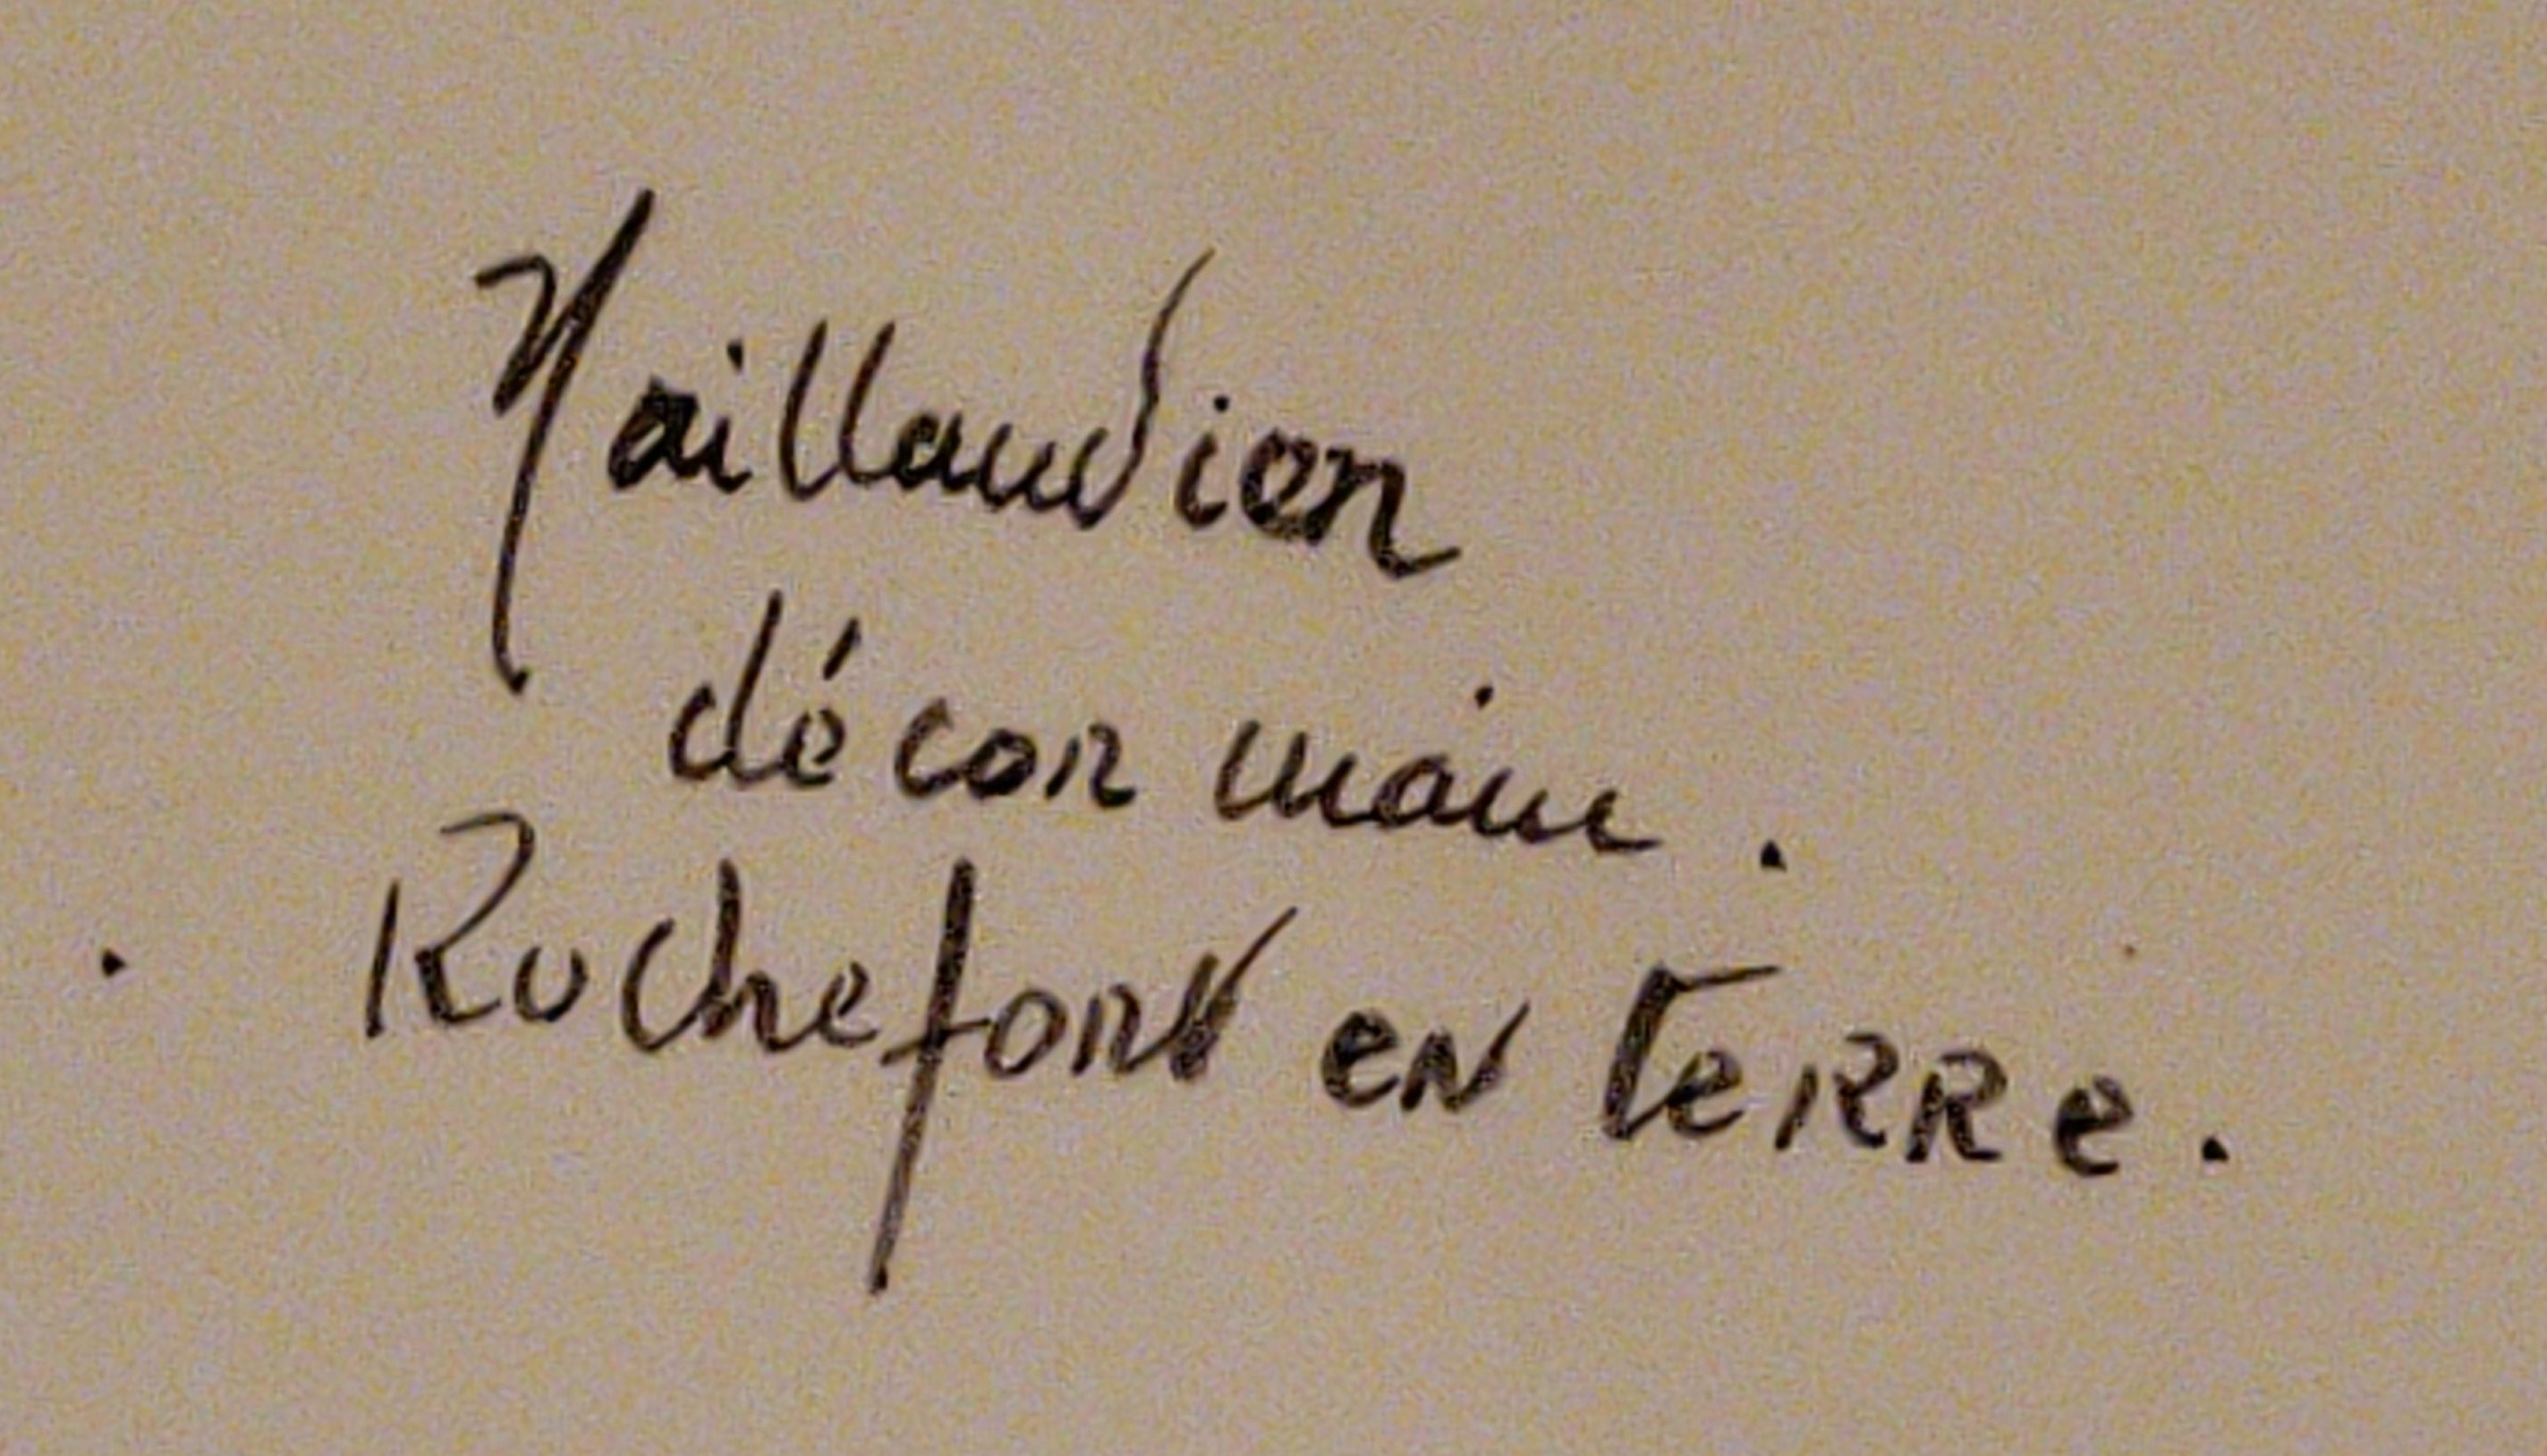 Naillaudion
décor main.
Rochefort en Terre.